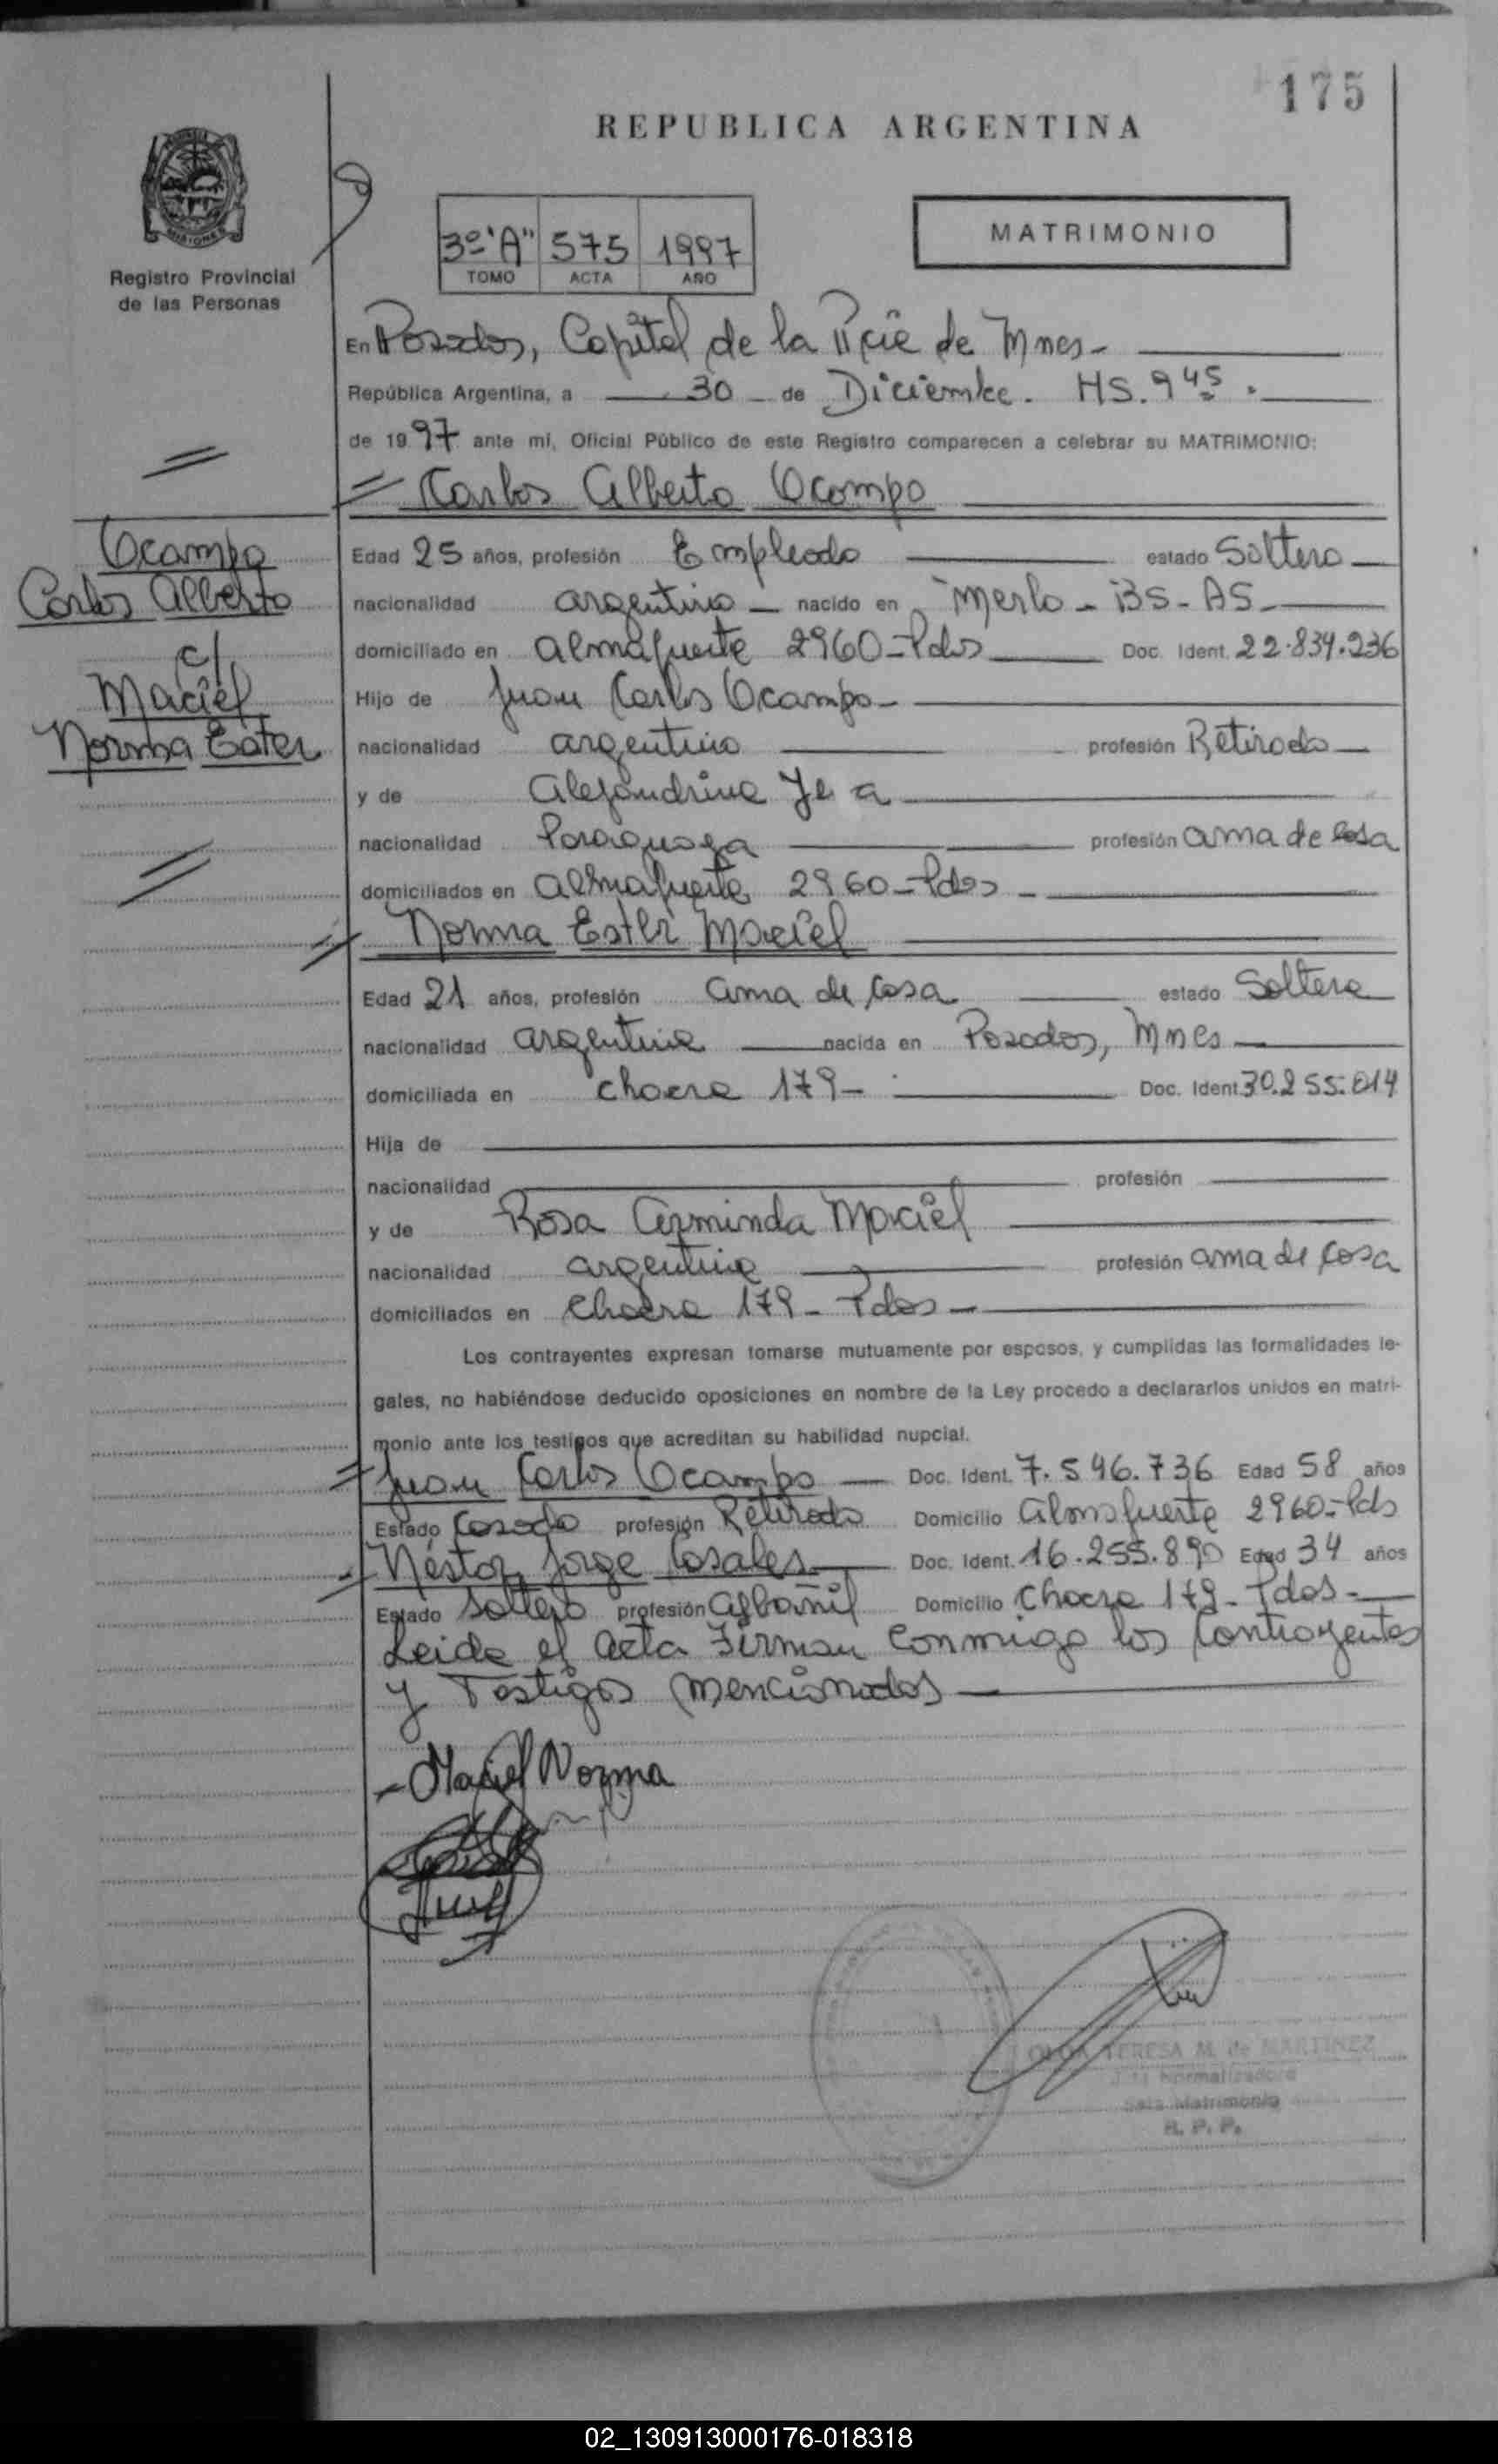 175
REPUBLICA ARGENTINA
MISIONES
Registro Provincial
de las Personas
3º "A" 575 1997
TOMO ACTA AÑO
MATRIMONIO
En Posadas, Capital de la Pcie de Mnes-
República Argentina, a 30 de Diciembre. HS. 9 45.
de 1997 ante mí, Oficial Público de este Registro comparecen a celebrar su MATRIMONIO:
Carlos Alberto Ocampo
Ocampo
Carlos Alberto
c/
Maciel
Norma Ester
Edad 25 años, profesión Empleado estado Soltero
nacionalidad argentino - nacido en Merlo - BS - AS -
domiciliado en Almafuerte 2960 - Pdas Doc. Ident. 22.834.236
Hijo de Juan Carlos Ocampo -
nacionalidad argentino profesión Retirado
y de Alejandrina
nacionalidad Paraguaya profesión ama de casa
domiciliados en Almafuerte 2960 - Pdas -
Norma Ester Maciel
Edad 21 años, profesión ama de casa estado Soltera
nacionalidad argentina nacida en Posadas, Mnes
domiciliada en chacra 179 - Doc. Ident. 30.255.014
Hija de
nacionalidad profesión
y de Rosa Arminda Maciel
nacionalidad argentina profesión ama de casa
domiciliados en Chacra 179 - Pdas -
Los contrayentes expresan tomarse mutuamente por esposos, y cumplidas las formalidades le-
gales, no habiéndose deducido oposiciones en nombre de la Ley procedo a declararlos unidos en matri-
monio ante los testigos que acreditan su habilidad nupcial.
Juan Carlos Ocampo Doc. Ident. 7.546.736 Edad 58 años
Estado Casado profesión Retirado Domicilio Almafuerte 2960 - Pds
Néstor Jorge Casales Doc. Ident. 16.255.890 Edad 34 años
Estado Soltero profesión Albañil Domicilio Chacra 179 - Pdas -
Leida el acta Firman Conmigo los Contrayentes
y Testigos mencionados
- Maciel Norma
TERESA M. de MARTINEZ
Normalizadora
Sala Matrimonio
R. P. P.
02_130913000176-018318